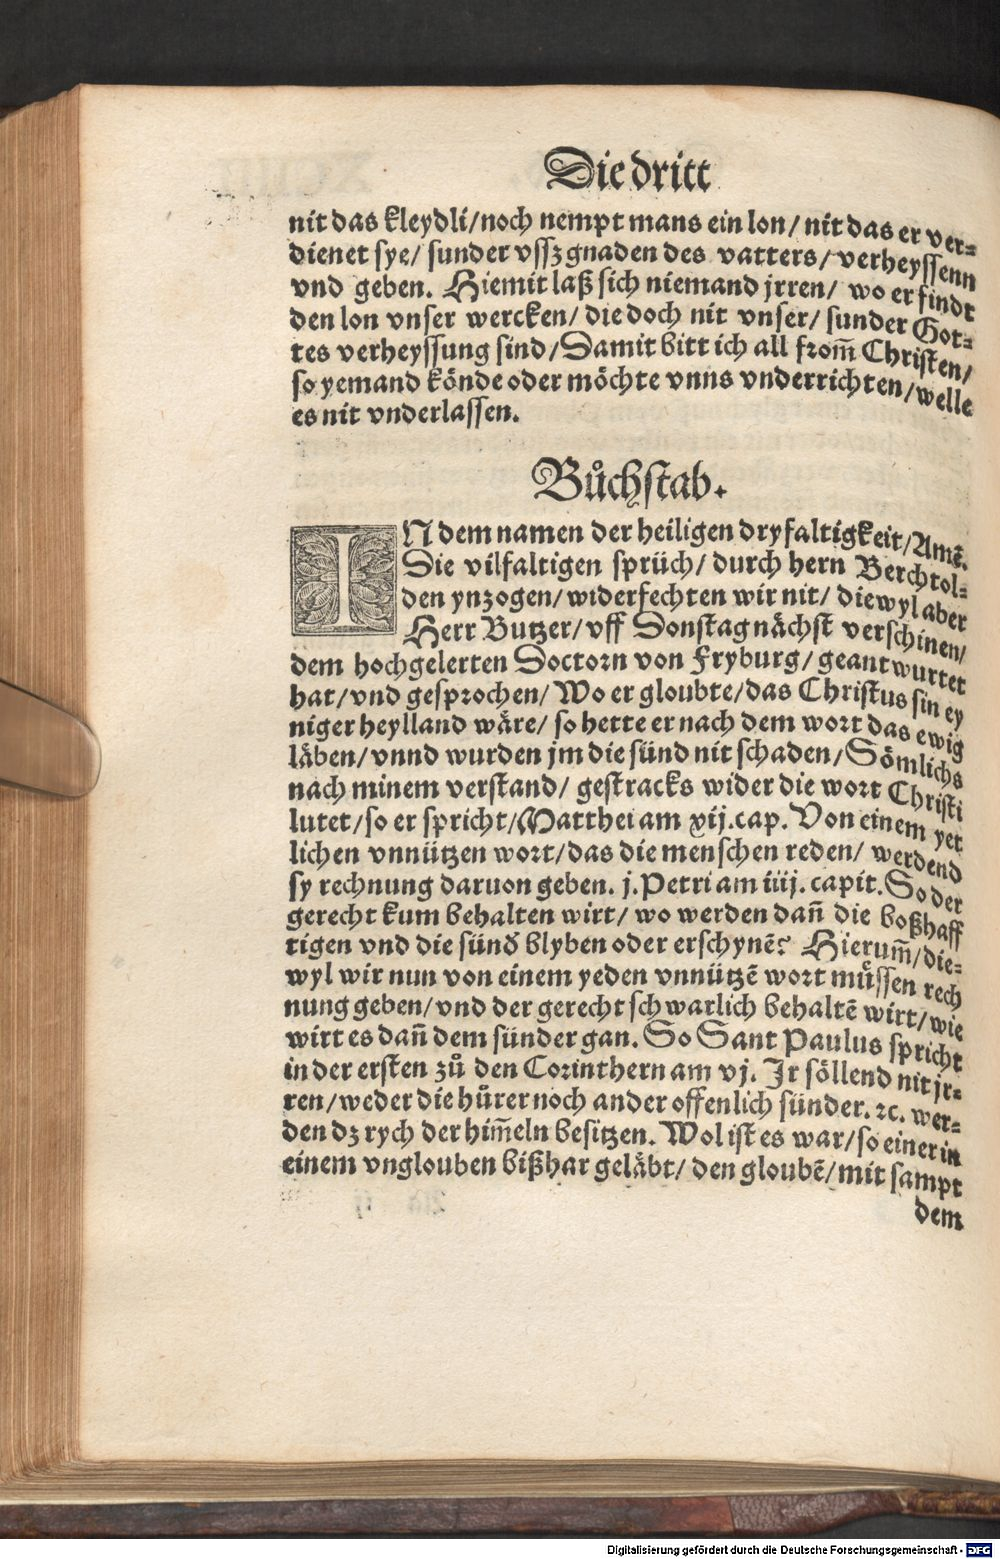 Die dritt
nit das kleydli/noch nempt mans ein lon/ nit das er ver⸗
dienet sye/ sunder vssz gnaden des vatters/ verheyssenn
vnd geben. Hiemit laß sich niemand jrren/ wo er findt
den lon vnser wercken/ die doch nit vnser/ sunder Got⸗
tes verheyssung sind/ Damit bitt ich all from̃ Christen/
so yemand könde oder möchte vnns vnderrichten/ welle
es nit vnderlassen.
Bůchstab.
IN dem namen der heiligen dryfaltigkeit/ Amẽ.
Die vilfaltigen sprüch/ durch hern Berchtol⸗
den ynzogen/ widerfechten wir nit/ diewyl aber
Herr Butzer/ vff Donstag nächst verschinen/
dem hochgelerten Doctorn von Fryburg/ geantwurtet
hat/ vnd gesprochen/ Wo er gloubte/ das Christus sin ey
niger heylland wäre/ so hette er nach dem wort das ewig
läben/ vnnd wurden jm die sünd nit schaden/ Sömlichs
nach minem verstand/ gestracks wider die wort Christi
lutet/ so er spricht/ Matthei am xij.cap. Von einem yet
lichen vnnützen wort/ das die menschen reden/ werdend
sy rechnung daruon geben. j.Petri am iiij. capit. So der
gerecht kum behalten wirt/ wo werden dañ die boßhaff
tigen vnd die sünd blyben oder erschynẽ? Hierum̃/ die⸗
wyl wir nun von einem yeden vnnützẽ wort müssen rech
nung geben/ vnd der gerecht schwarlich behaltẽ wirt/ wie
wirt es dañ dem sünder gan. So Sant Paulus spricht
in der ersten zů den Corinthern am vj. Ir söllend nit jr⸗
ren/ weder die hůrer noch ander offenlich sünder. ꝛc. wer⸗
den dz rych der him̃eln besitzen. Wol ist es war/ so einer in
einem vnglouben bißhar geläbt/ den gloubẽ/ mit sampt
dem
Digitalisierung gefördert durch die Deutsche Forschungsgemeinschaft - DFG